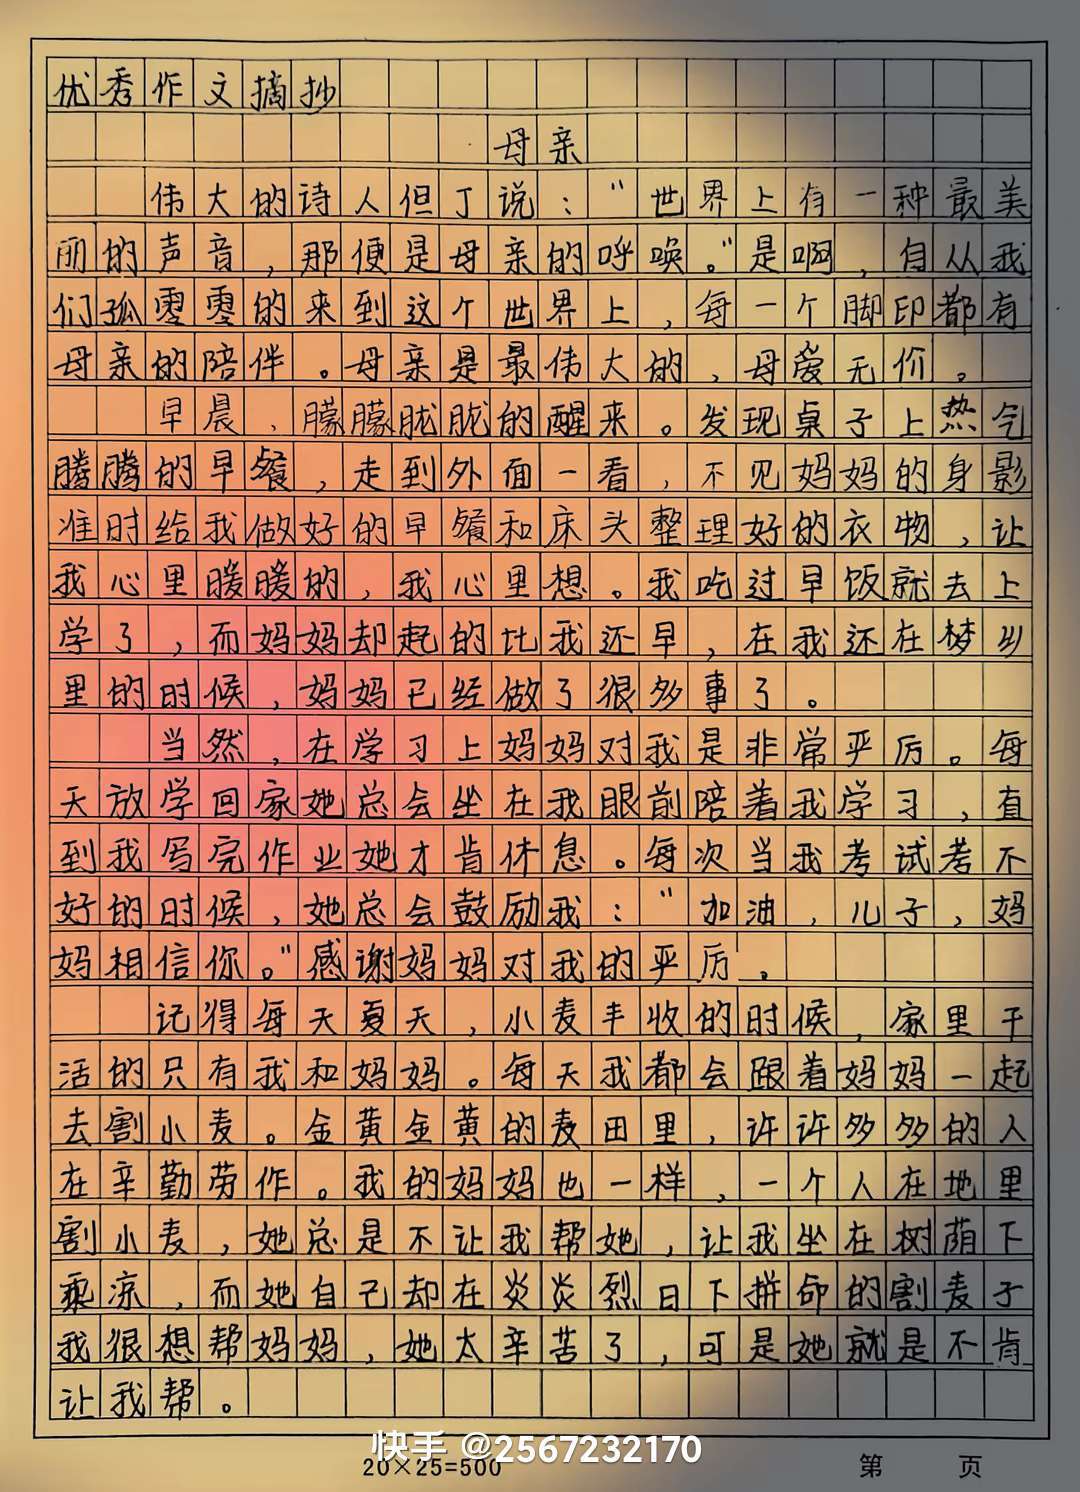 优秀作文摘抄
母亲
伟大的诗人但丁说：“世界上有一种最美
丽的声音，那便是母亲的呼唤。”是啊，自从我
们孤零零的来到这个世界上，每一个脚印都有
母亲的陪伴。母亲是最伟大的，母爱无价。
早晨，朦朦胧胧的醒来。发现桌子上热气
腾腾的早餐，走到外面一看，不见妈妈的身影
准时给我做好的早餐和床头整理好的衣物，让
我心里暖暖的，我心里想。我吃过早饭就去上
学了，而妈妈却起的比我还早，在我还在梦乡
里的时候，妈妈已经做了很多事了。
当然，在学习上妈妈对我是非常严厉。每
天放学回家她总会坐在我眼前陪着我学习，直
到我写完作业她才肯休息。每次当我考试考不
好的时候，她总会鼓励我：“加油，儿子，妈
妈相信你。”感谢妈妈对我的严厉。
记得每天夏天，小麦丰收的时候，家里干
活的只有我和妈妈。每天我都会跟着妈妈一起
去割小麦。金黄金黄的麦田里，许许多多的人
在辛勤劳作。我的妈妈也一样，一个人在地里
割小麦，她总是不让我帮她，让我坐在树荫下
乘凉，而她自己却在炎炎烈日下拼命的割麦子
我很想帮妈妈，她太辛苦了，可是她就是不肯
让我帮。
快手 @2567232170
20×25=500 第 页